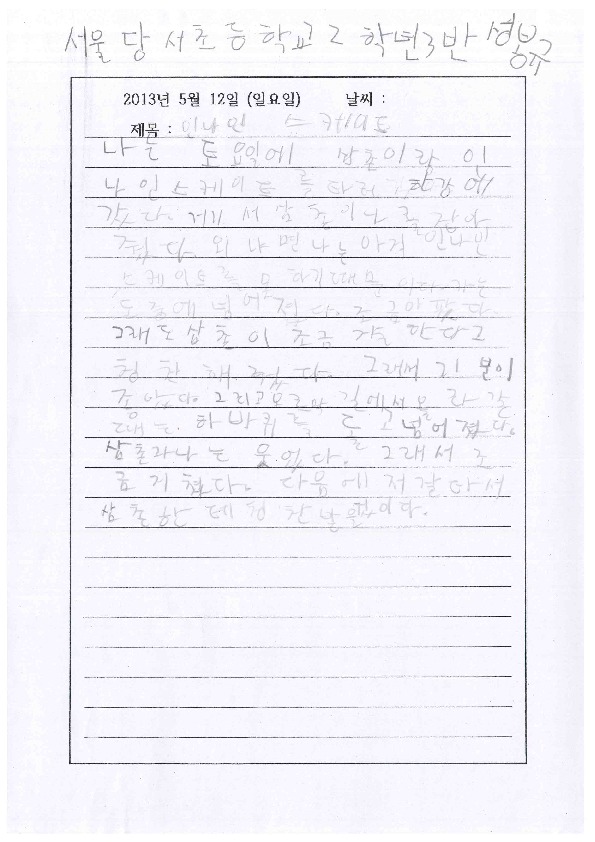 서울당서초등학교 2학년 3반 성봉규
2013년 5월 12일 (일요일) 날씨 :
제목 : 인나인 스케이트
나는 토요일에 삼촌이랑 인
나인스케이트를 타러 한강에
갔다. 거기서 삼촌이 나를 잡아
줬다. 왜냐면 나는 아직 인나인
스케이트를 못 하기 때문이다. 가는
도중에 넘어졌다. 조금 아팠다.
그래도 삼촌이 조금 잘 탄다고
칭찬해 줬다. 그래서 기분이
좋았다. 그리고 길에서 올라갈
때는 한 바퀴를 돌고 넘어졌다.
삼촌과 나는 웃었다. 그래서 조
금 지쳤다. 다음에 더 잘 타서
삼촌한테 칭찬 받을 것이다.